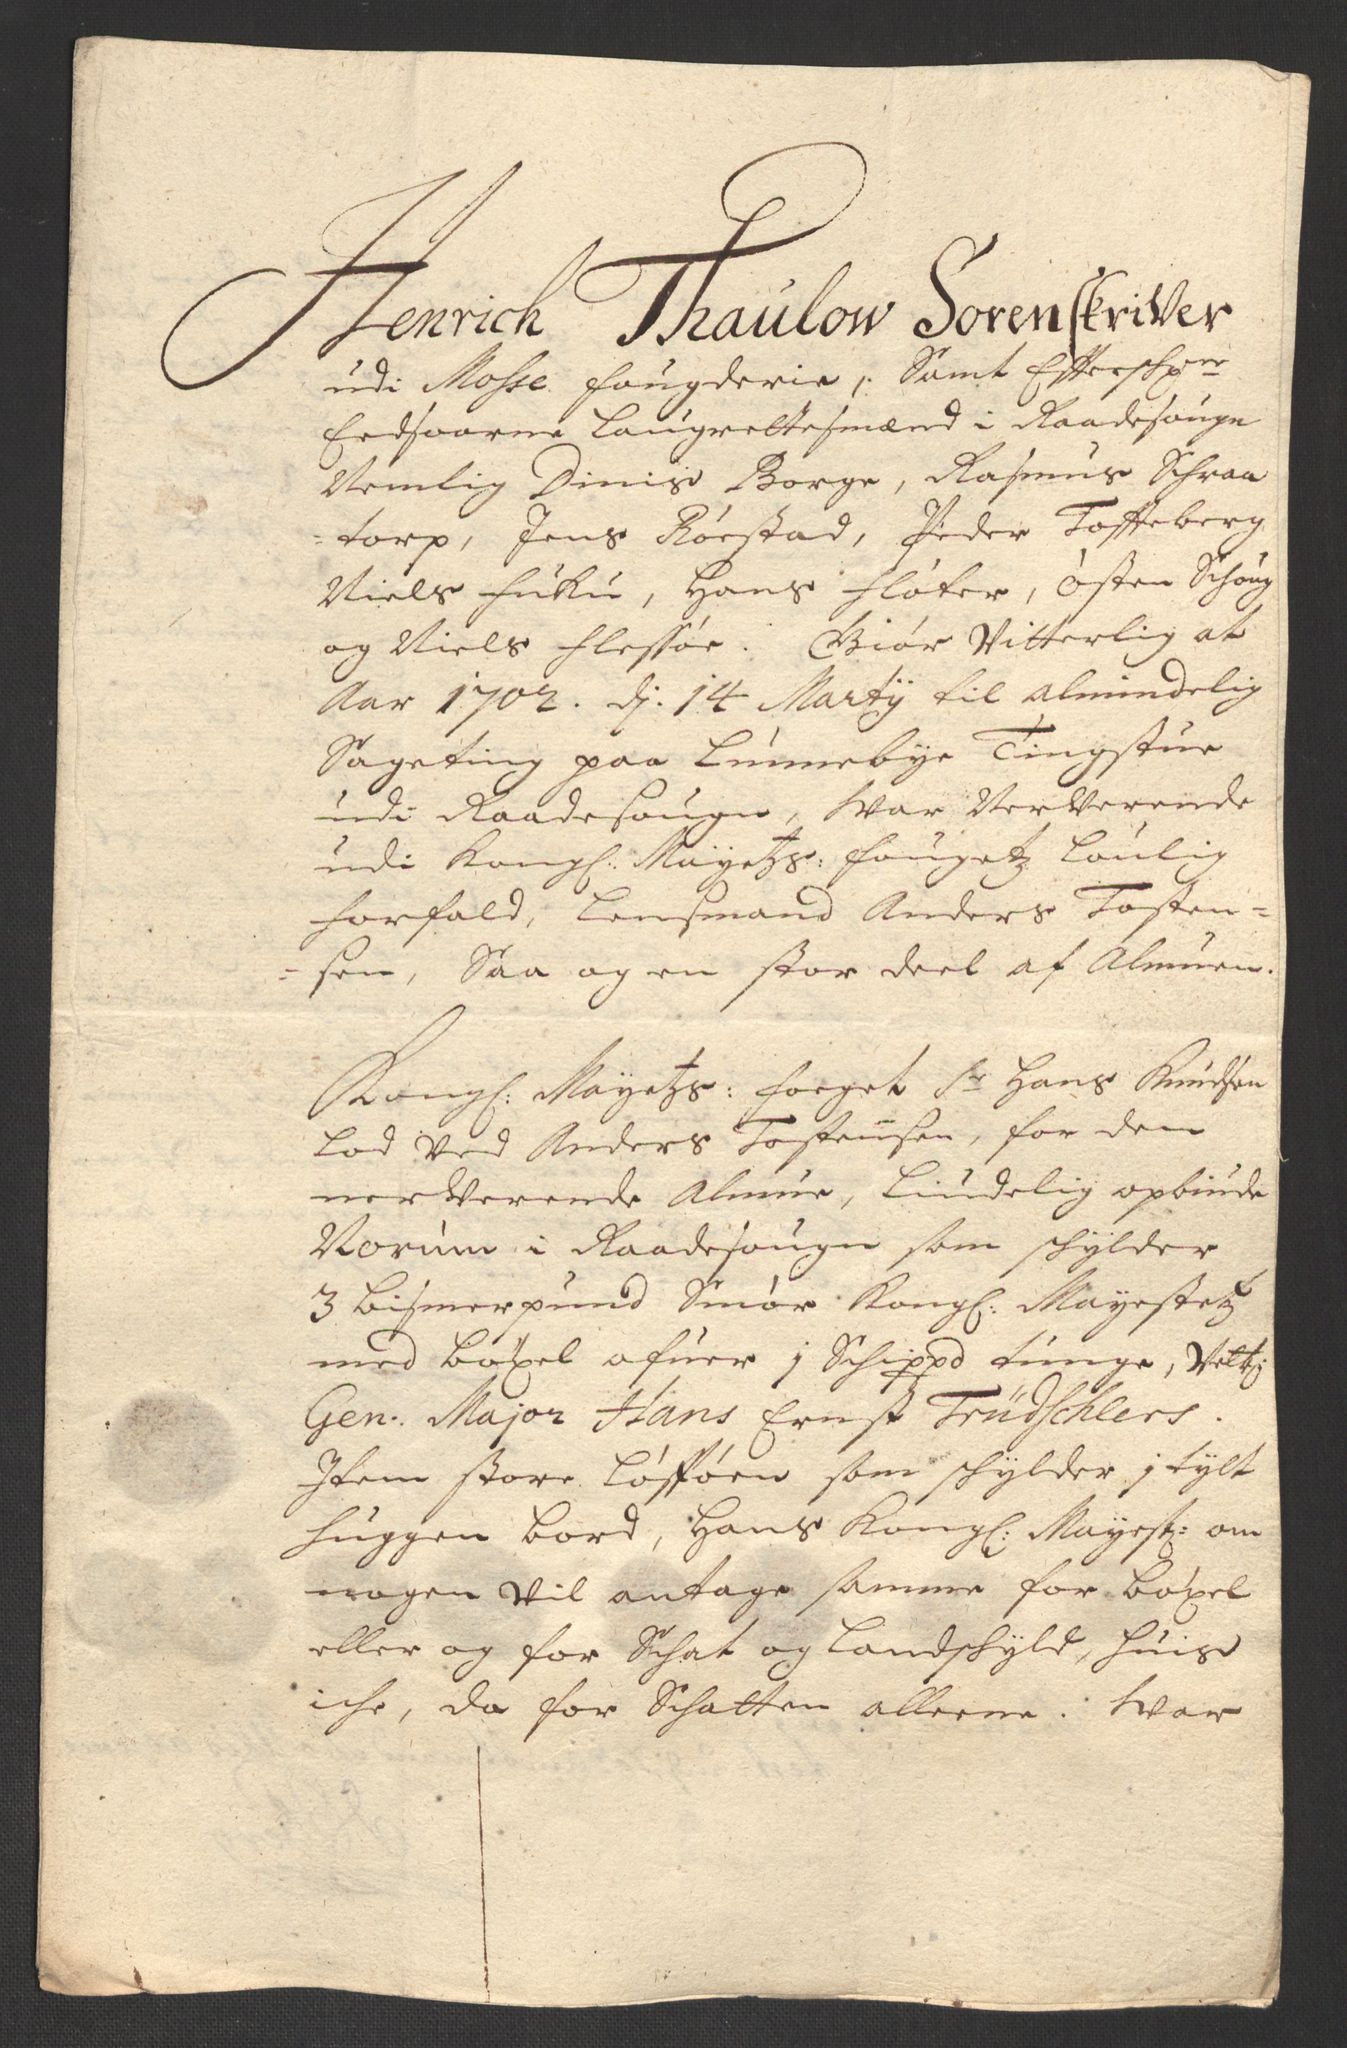 Henrich Thaulow Sorenskriver
udi Mosse fougderie, Samt Effterschrne
Eedsoorne Laugrettesmænd i Raadesougn
Nemlig Dinis Borge, Rasmus Schraa
=torp, Jens Röestad, Peder Toffteberg
Niels Huku, Hans Flöter, Østen Schoug
og Niels Flessöe. Giör Vitterlig at
Aar 1702. dj. 14 Martÿ til almindelig
Sageting paa Lunnebye Tingstue
udi Raadesougn, war Nerverende
udi Kongl: Mayetzs: fougetz Loulig
forfald, Lensmand Anders Tosten=
=sen, Saa og en stor deel af Almuen.
Kongl: Mayetzs: foeget Sr Hans Knudsen
Lod ved Anders Tostensen, for den
nerverende Almue, Liudelig opbiude
Norum i Raadesougn som schylder
3 bismerpund Smör Kongl: Mayestetz
med böxel ofuer 1 Schippd tunge, Velb:
Gen. Major Hans Ernst Trüdschlers.
Item store Lössöen som schylder 1 tylt
huggen bord, Hans Kongl: Mayest: om
nogen vil antage samme for böxel
eller og for Schat og Landschyld, huis
iche, da for Schatten alleene. War